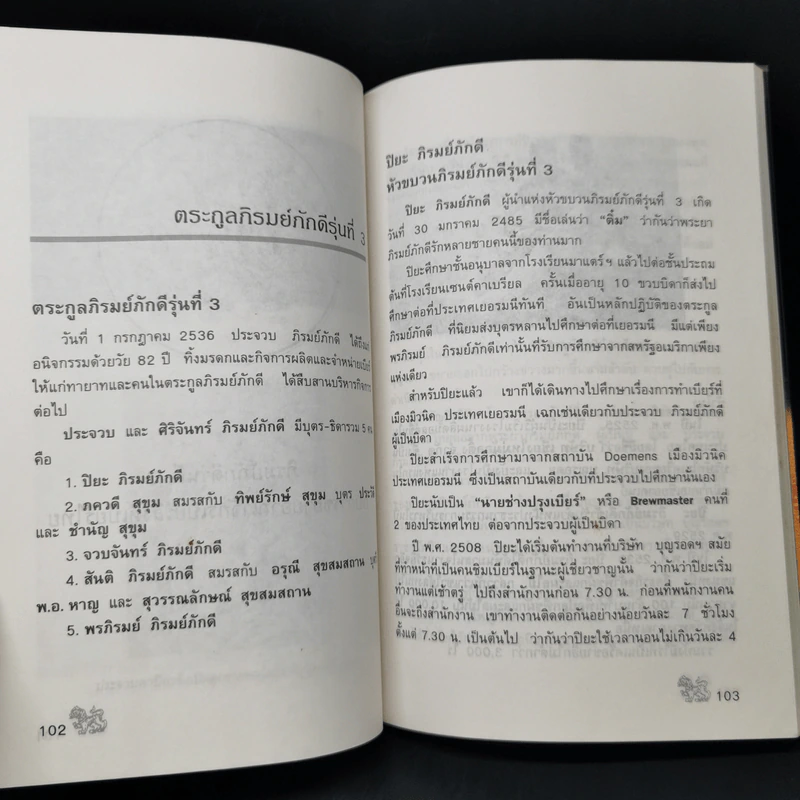 ตระกูลภิรมย์ภักดีรุ่นที่ 3
ตระกูลภิรมย์ภักดีรุ่นที่ 3
วันที่ 1 กรกฎาคม 2536 ประจวบ ภิรมย์ภักดี ได้ถึงแก่
อนิจกรรมด้วยวัย 82 ปี ทิ้งมรดกและกิจการผลิตและจำหน่ายเบียร์
ให้แก่ทายาทและคนในตระกูลภิรมย์ภักดี ได้สืบสานบริหารกิจการ
ต่อไป
ประจวบ และ ศิริจันทร์ ภิรมย์ภักดี มีบุตร-ธิดารวม 5 คน
คือ
1. ปิยะ ภิรมย์ภักดี
2. ภควดี สุขุม สมรสกับ ทิพย์รักษ์ สุขุม บุตร
และ ชำนัญ สุขุม
3. จวบจันทร์ ภิรมย์ภักดี
4. สันติ ภิรมย์ภักดี สมรสกับ อรุณี สุขสมสถาน
พ.อ. หาญ และ สุวรรณลักษณ์ สุขสมสถาน
5. พรภิรมย์ ภิรมย์ภักดี
102
ปิยะ ภิรมย์ภักดี
หัวขบวนภิรมย์ภักดีรุ่นที่ 3
ปิยะ ภิรมย์ภักดี ผู้นำแห่งหัวขบวนภิรมย์ภักดีรุ่นที่ 3 เกิด
วันที่ 30 มกราคม 2485 มีชื่อเล่นว่า “ติ๋ม” ว่ากันว่าพระยา
ภิรมย์ภักดีรักหลายชายคนนี้ของท่านมาก
ปิยะศึกษาชั้นอนุบาลจากโรงเรียนมาแตร์ฯ แล้วไปต่อชั้นประถม
ต้นที่โรงเรียนเซนต์คาเบรียล ครั้นเมื่ออายุ 10 ขวบบิดาก็ส่งไป
ศึกษาต่อที่ประเทศเยอรมนีทันที อันเป็นหลักปฏิบัติของตระกูล
ภิรมย์ภักดี ที่นิยมส่งบุตรหลานไปศึกษาต่อที่เยอรมนี มีแต่เพียง
พรภิรมย์ ภิรมย์ภักดีเท่านั้นที่รับการศึกษาจากสหรัฐอเมริกาเพียง
แห่งเดียว
สำหรับปิยะแล้ว เขาก็ได้เดินทางไปศึกษาเรื่องการทำเบียร์ที่
เมืองมิวนิค ประเทศเยอรมนี เฉกเช่นเดียวกับประจวบ ภิรมย์ภักดี
ผู้เป็นบิดา
ปิยะสำเร็จการศึกษามาจากสถาบัน Doemens เมืองมิวนิค
ประเทศเยอรมนี ซึ่งเป็นสถาบันเดียวกับที่ประจวบไปศึกษานั่นเอง
ปิยะนับเป็น “นายช่างปรุงเบียร์” หรือ Brewmaster คนที่
2 ของประเทศไทย ต่อจากประจวบผู้เป็นบิดา
ปี พ.ศ. 2508 ปิยะได้เริ่มต้นทำงานที่บริษัท บุญรอดฯ สมัย
ที่ทำหน้าที่เป็นคนชิมเบียร์ในฐานะผู้เชี่ยวชาญนั้น ว่ากันว่าปิยะเริ่ม
ทำงานแต่เช้าตรู่ ไปถึงสำนักงานก่อน 7.30 น. ก่อนที่พนักงานคน
อื่นจะถึงสำนักงาน เขาทำงานติดต่อกันอย่างน้อยวันละ 7 ชั่วโมง
ตั้งแต่ 7.30 น. เป็นต้นไป ว่ากันว่าปิยะใช้เวลานอนไม่เกินวันละ 4
103